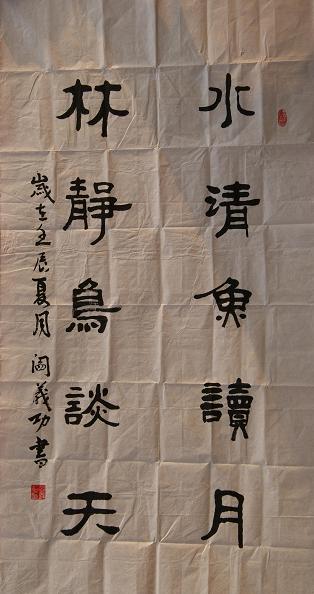 水清魚讀月
林靜鳥談天
歲在壬辰夏月 闞義功書